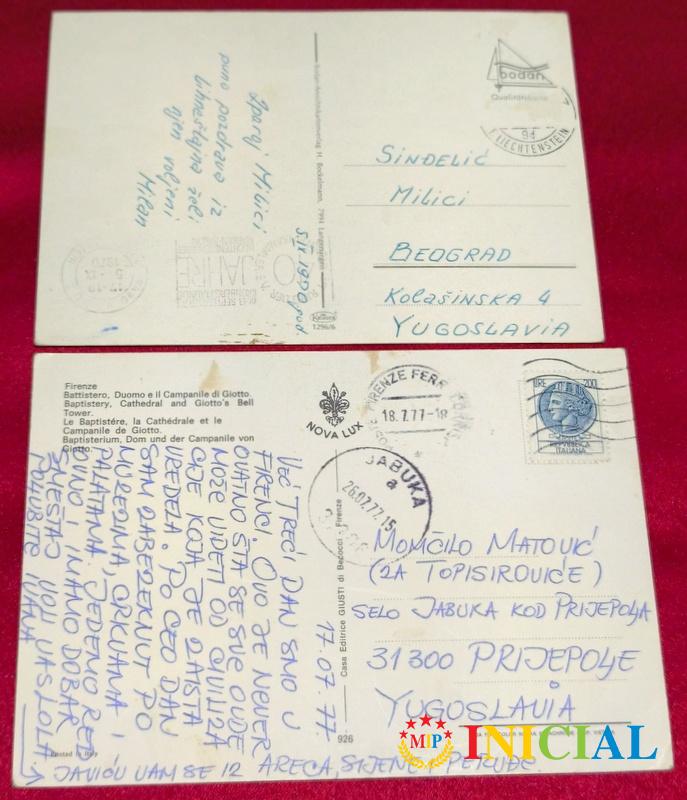 Šparoj Milici
puno pozdrava iz
njen voljeni
Milan
5.IX 1970 god.
bodan
Qualitätskarte
FL LIECHTENSTEIN
SINĐELIĆ
MILICI
BEOGRAD
KOLAŠINSKA 4
YUGOSLAVIA
JAHRE
1296/6
Firenze
Battistero, Duomo e il Campanile di Giotto.
Baptistery, Cathedral and Giotto's Bell
Tower.
Le Baptistére, la Cathédrale et le
Campanile de Giotto.
Baptisterium, Dom und der Campanile von
Giotto.
NOVA LUX
FIRENZE FERR
18.7.77-18
LIRE 200
REPUBBLICA
ITALIANA
JABUKA
a
26.07.77.15
17.07.77
VEĆ TREĆI DAN SMO U
FIRENCI. OVO JE NEVER
OVATNO ŠTA SE SVE OVDE
MOŽE VIDETI OD
KOJA JE ZAISTA
VREDELA. PO CEO DAN
SAM DABEZEKNUT PO
MUZEJIMA, CRKVAMA I
PALATAMA. JEDEMO RE
DOVNO I IMAMO DOBAR
SMEŠTAJ. VOLI VAS LOLA
POLJUBITE IVANA
JAVIĆU VAM SE IZ ARECA, SIJENE I PERUĐE.
Casa Editrice GIUSTI di Becocci - Firenze
926
Printed in Italy
MOMČILO MATOVIĆ
(ZA TOPISIROVIĆE)
SELO JABUKA KOD PRIJEPOLJA
31300 PRIJEPOLJE
YUGOSLAVIA
MIP INICIAL